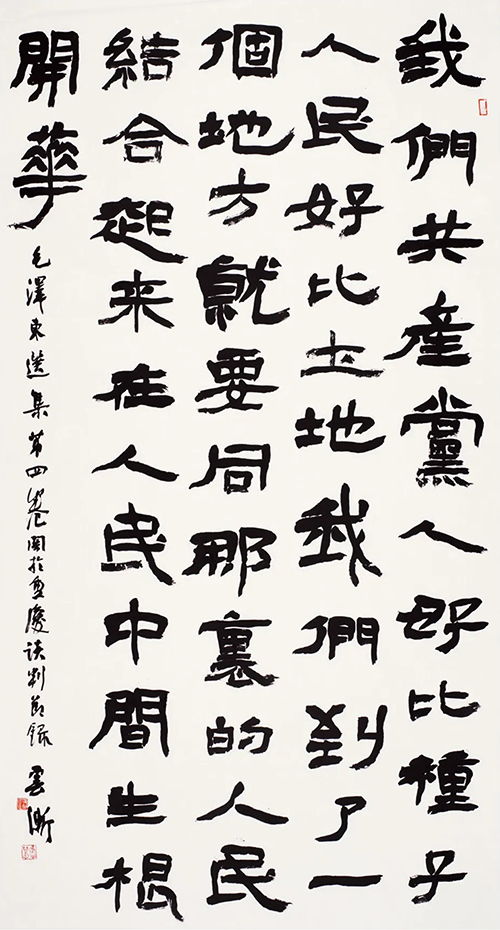 我們共產黨人好比種子
人民好比土地我們到了一
個地方就要同那裏的人民
結合起來在人民中間生根
開華
毛澤東選集第四卷關於重慶談判節錄
雲衢